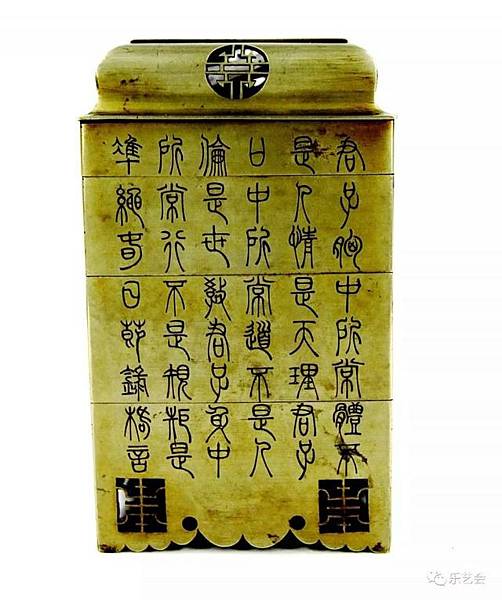 君子胸中所常體不
是人情是天理君子
口中所常道不是人
倫是世教君子身中
所常行不是規矩是
準繩春日節錄格言
乐艺会